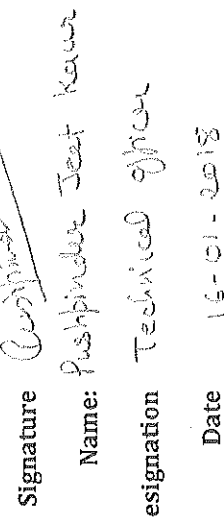 Signature
Name: Pushpinder Jeet Kaur
esignation Technical officer
Date 16-01-2018